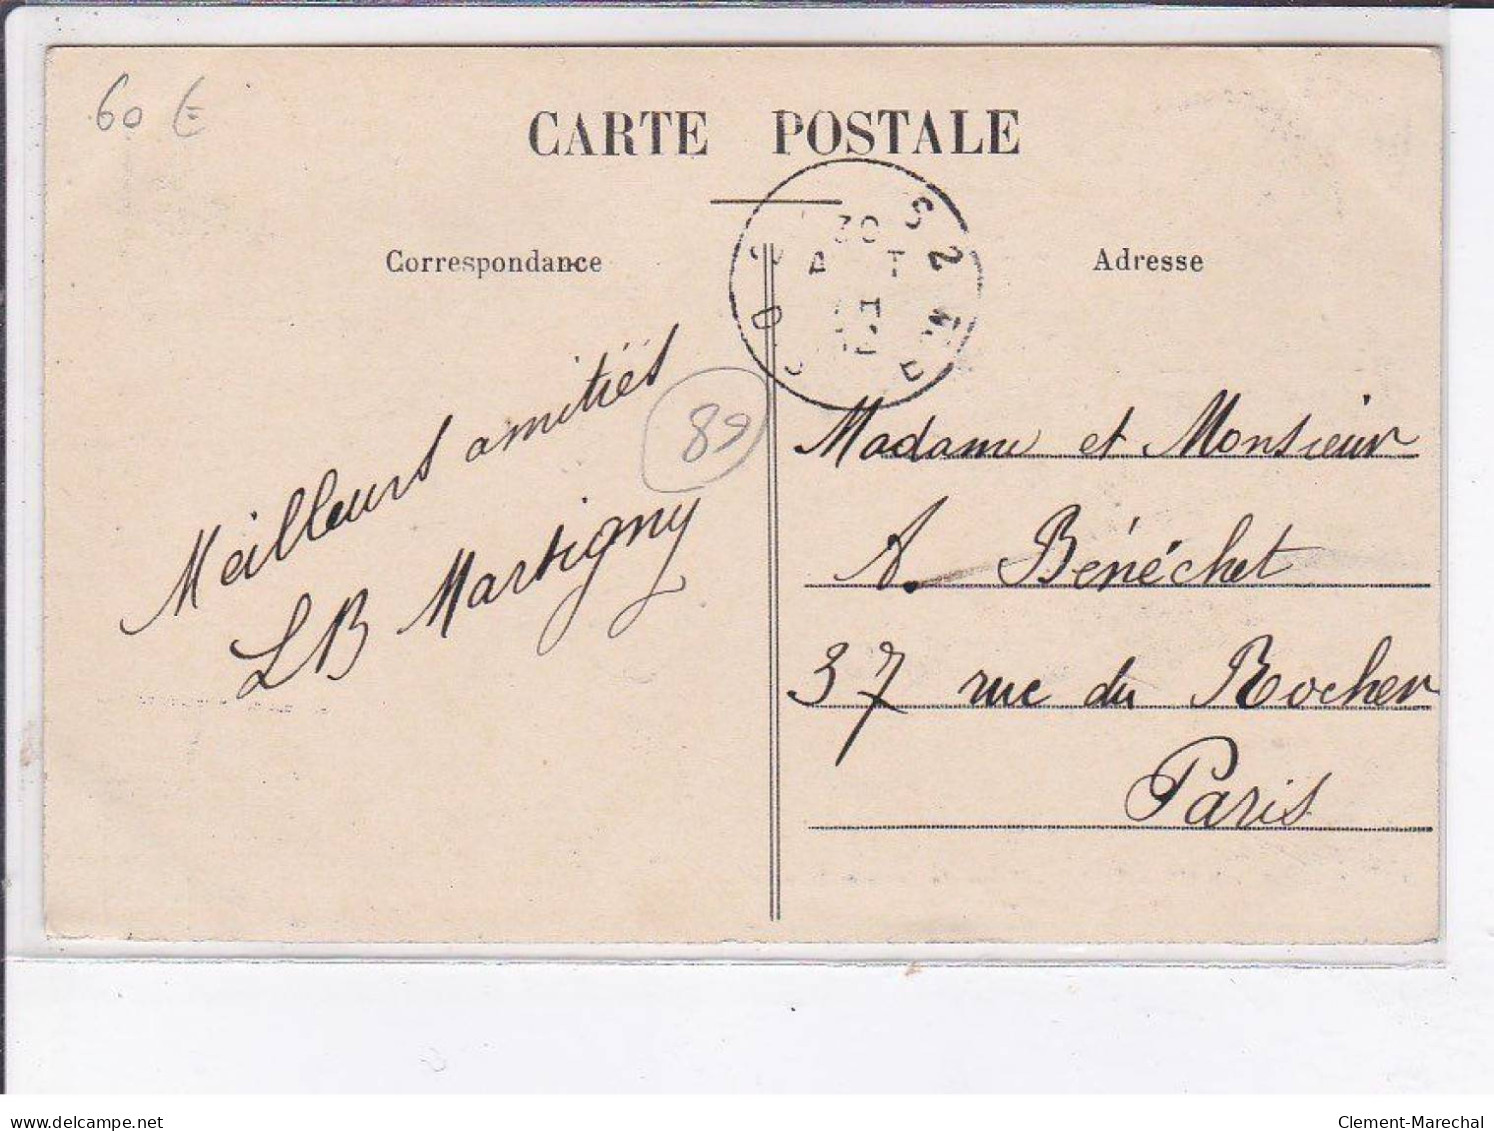 60 €
CARTE POSTALE
Correspondance
Adresse
30
Meilleurs amitiés
LB Martigny
89
Madame et Monsieur
A. Bénéchet
37 rue du Rocher
Paris
delcampe.net
Clement-Marechal